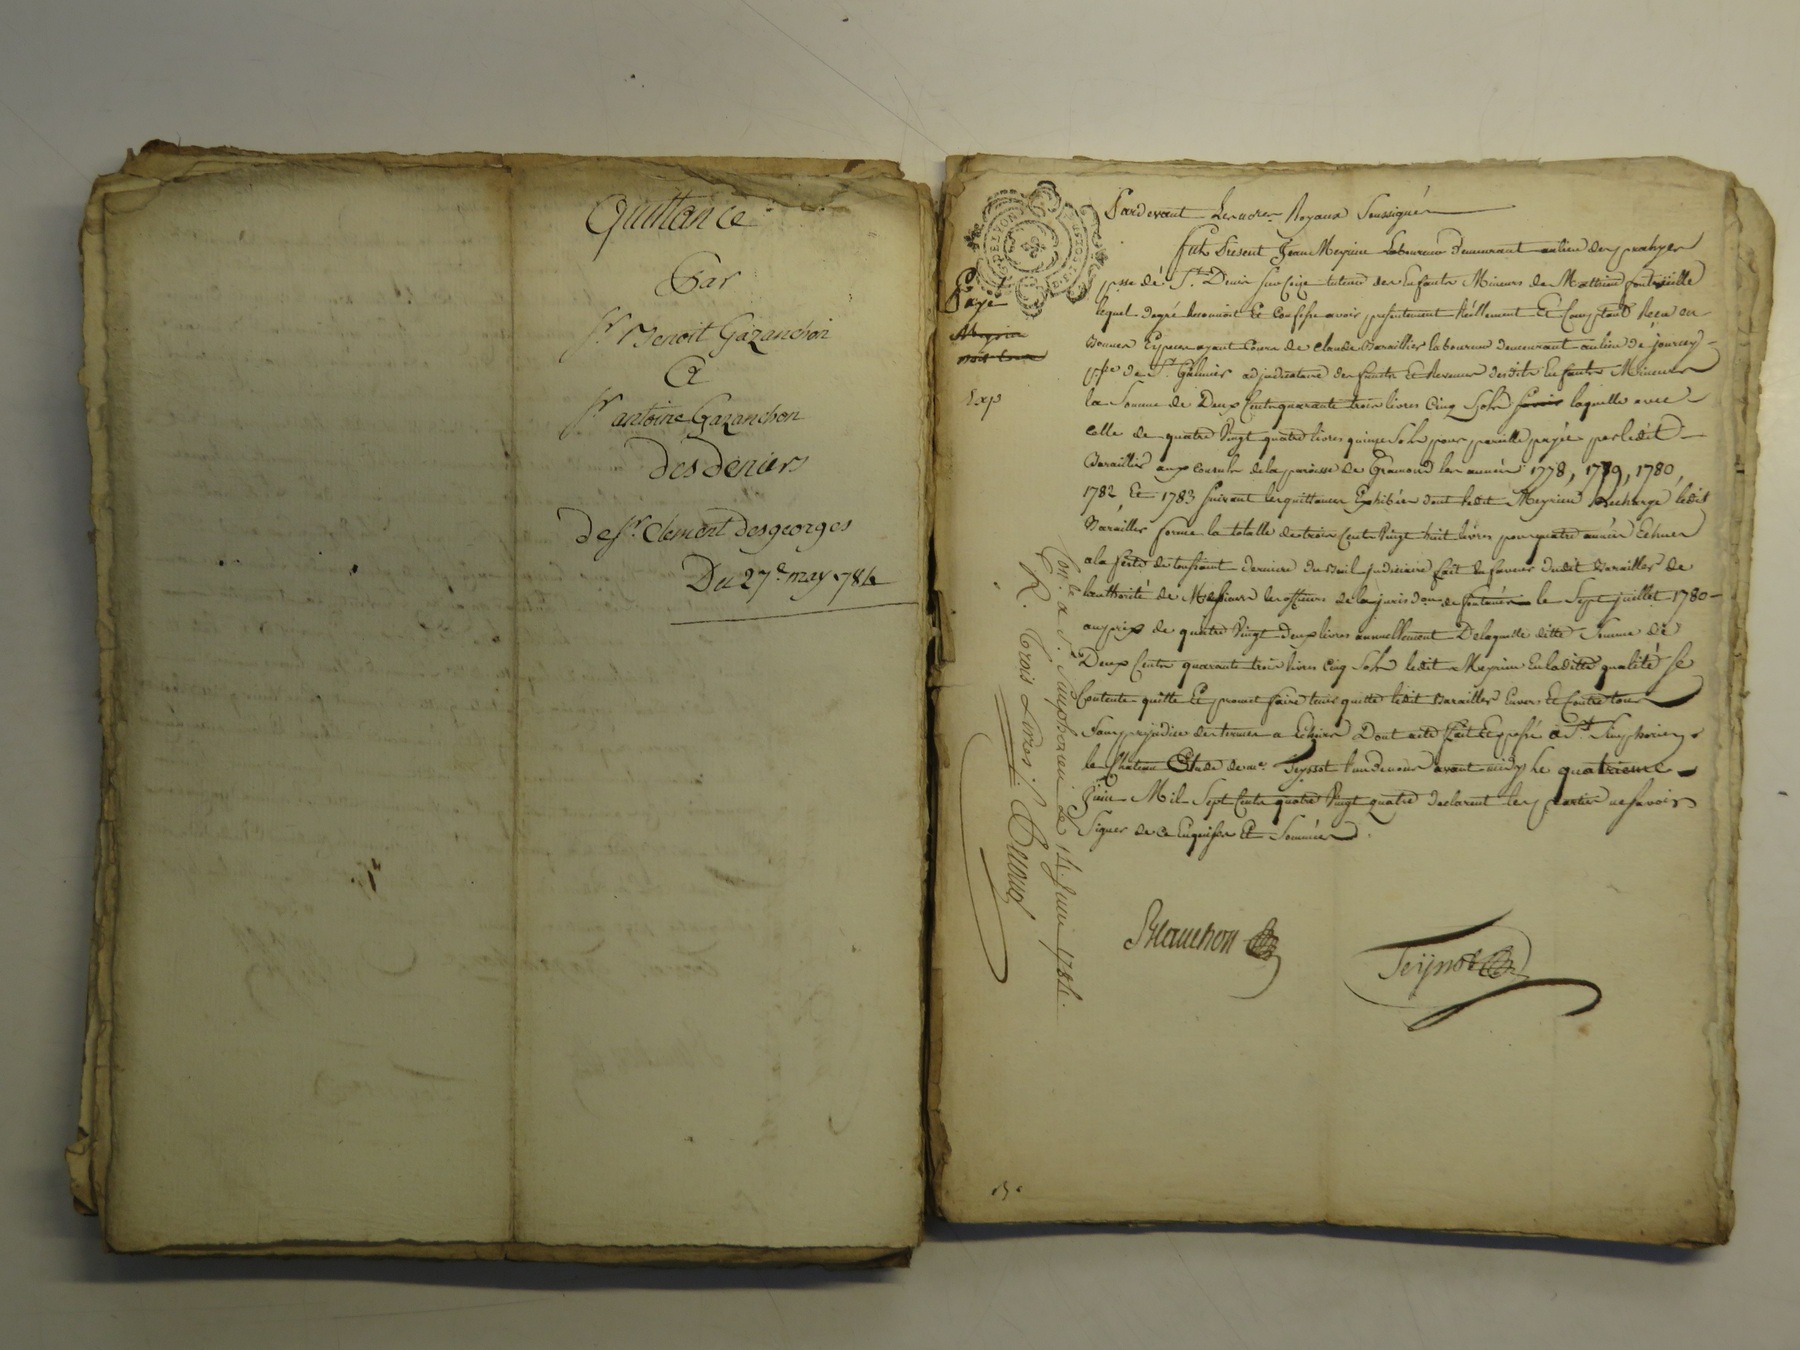 Quittance
Par
Sr. Benoit Gazanchon
A
Sr. antoine Gazanchon
des deniers
de Sr. Clement desgeorges
Du 27e. may 1784
Pardevant Les nores Royaux Soussignés
fut Present Jean Meyrieu Laboureur demeurant au lieu des
psse de St. Denis Sur Coize tuteur des Enfants Mineurs de Mathieu fontvieille
lequel degré Reconnoit Et Confesse avoir presentement Réellement Et Comptant Reçu en
Bonnes Especes ayant Cours de Claude Barailler laboureur demeurant au lieu de jourcey
psse de St. Galmier adjudicataire des fruits Et Revenus desdits Enfants Mineurs
la Somme de Deux Cents quarante trois livres Cinq Sols laquelle avec
celle de quatre Vingt quatre livres quinze Sols pour pareille payée par ledit
Barailler aux Consuls de la paroisse de Gramond les années 1778, 1779, 1780,
1782 Et 1783 Suivant les quittances Exhibées dont ledit Meyrieu Décharge ledit
Barailler forme la totalle de trois Cents Vingt huit livres pour quatre années Echues
a la fête de toussaint derniere du Bail judiciaire fait en faveur dudit Barailler de
l'authorité de Messieurs les officiers de la jurisdon de fontanès le Sept juillet 1780
au prix de quatre Vingt deux livres annuellement De laquelle ditte Somme de
Deux Cents quarante trois livres Cinq Sols ledit Meyrieu En laditte qualité Se
Contente quitte Et promet faire tenir quitte ledit Barailler Envers Et Contre tous
Sans prejudice des termes a Echoir Dont acte fait Et passé à St. Simphorien
le Chateau Etude de me. Teyssot l'un de nous avant midy Le quatrieme
Juin Mil Sept Cents quatre Vingt quatre declarent les parties ne savoir
Signer de ce Enquises Et Sommées
Blanchon
Teyssot
Payé
Exp
Conlé. a St. Simphorien le 14 Juin 1784.
R. trois Livres